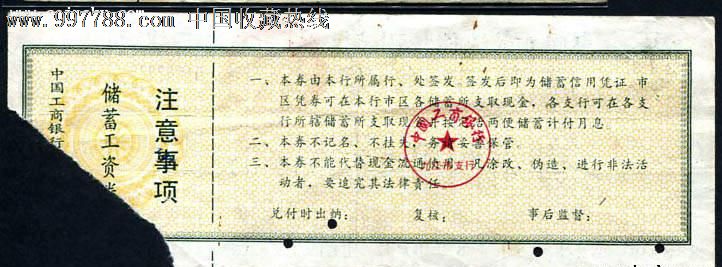 www.997788.com 中国收藏热线
中国工商银行
储蓄工资
注意事项
一、本券由本行所属行、处签发，签发后即为储蓄信用凭证。市
区凭券可在本行市区各储蓄所支取现金，各支行可在各支
行所辖储蓄所支取现 并按 两便储蓄计付月息
二、本券不记名、不挂失，务 妥善保管。
三、本券不能代替现金流通使用，凡涂改、伪造、进行非法活
动者，要追究其法律责任。
中国工商银行
支行
兑付时出纳：
复核：
事后监督：